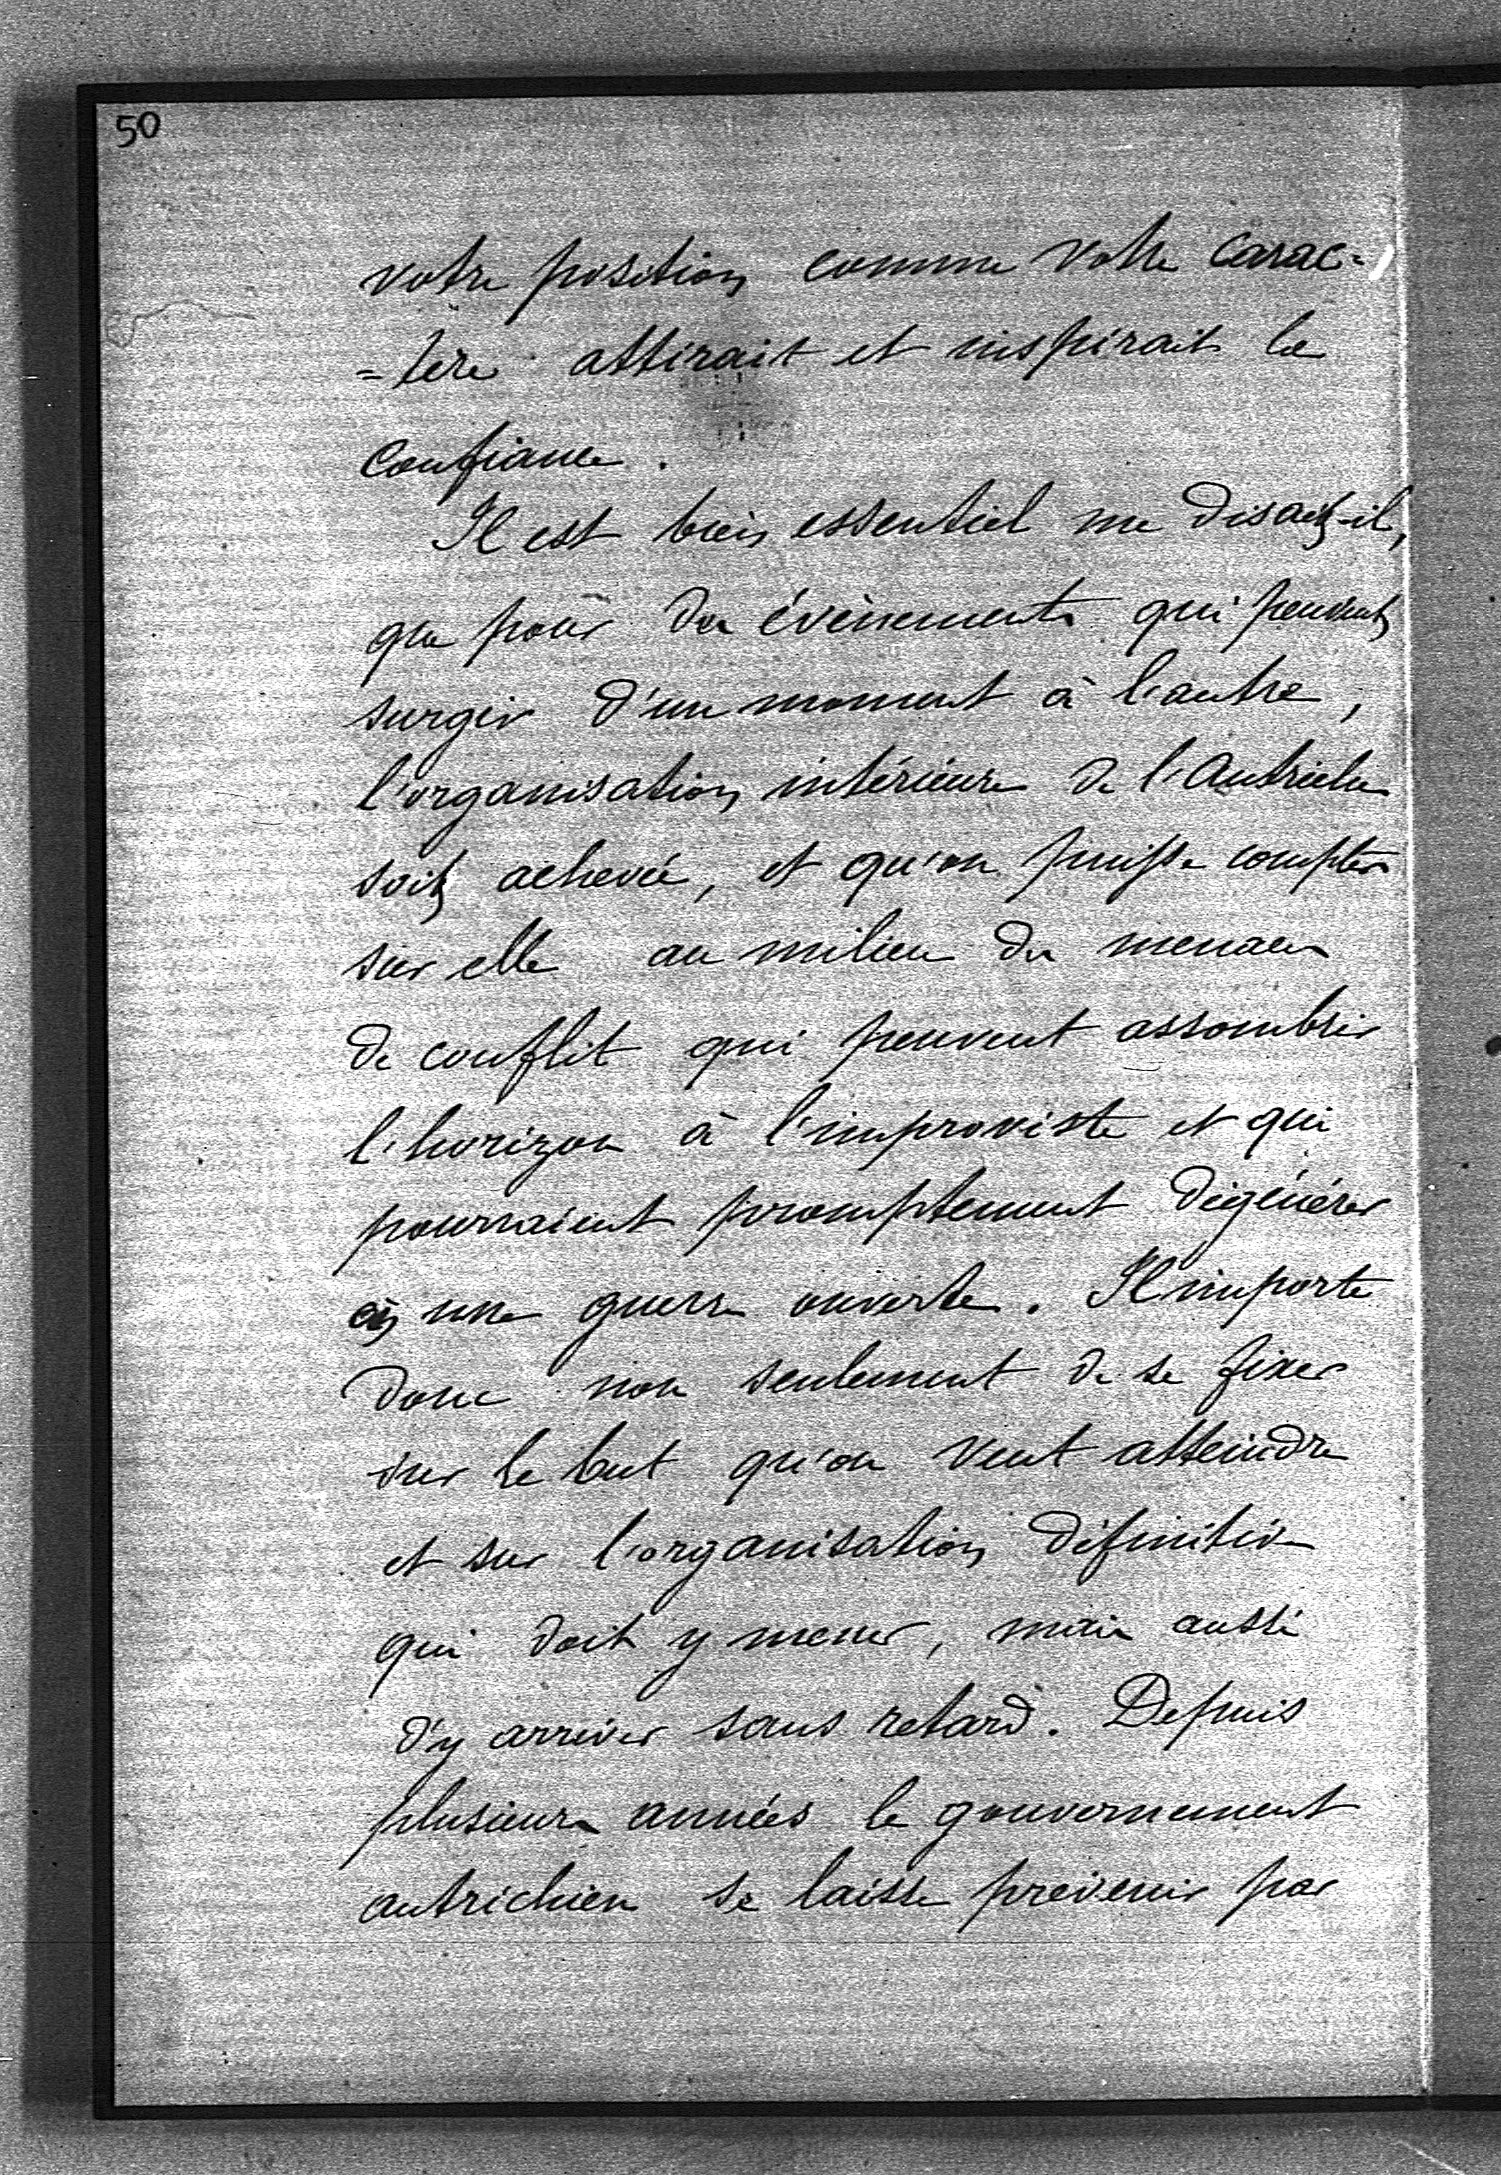 50
votre position comme votre carac=
=tère attirait et inspirait la
confiance.
Il est bien essentiel me disait-il,
que pour des événements qui peuvent
surgir d'un moment à l'autre,
l'organisation intérieure de l'Autriche
soit achevée, et qu'on puisse compter
sur elle au milieu des menaces
de conflit qui peuvent assombrir
l'horizon à l'improviste et qui
pourraient promptement dégénérer
en une guerre ouverte. Il importe
donc non seulement de se fixer
sur le but qu'on veut atteindre
et sur l'organisation définitive
qui doit y mener, mais aussi
d'y arriver sans retard. Depuis
plusieurs années le gouvernement
autrichien se laisse prévenir par